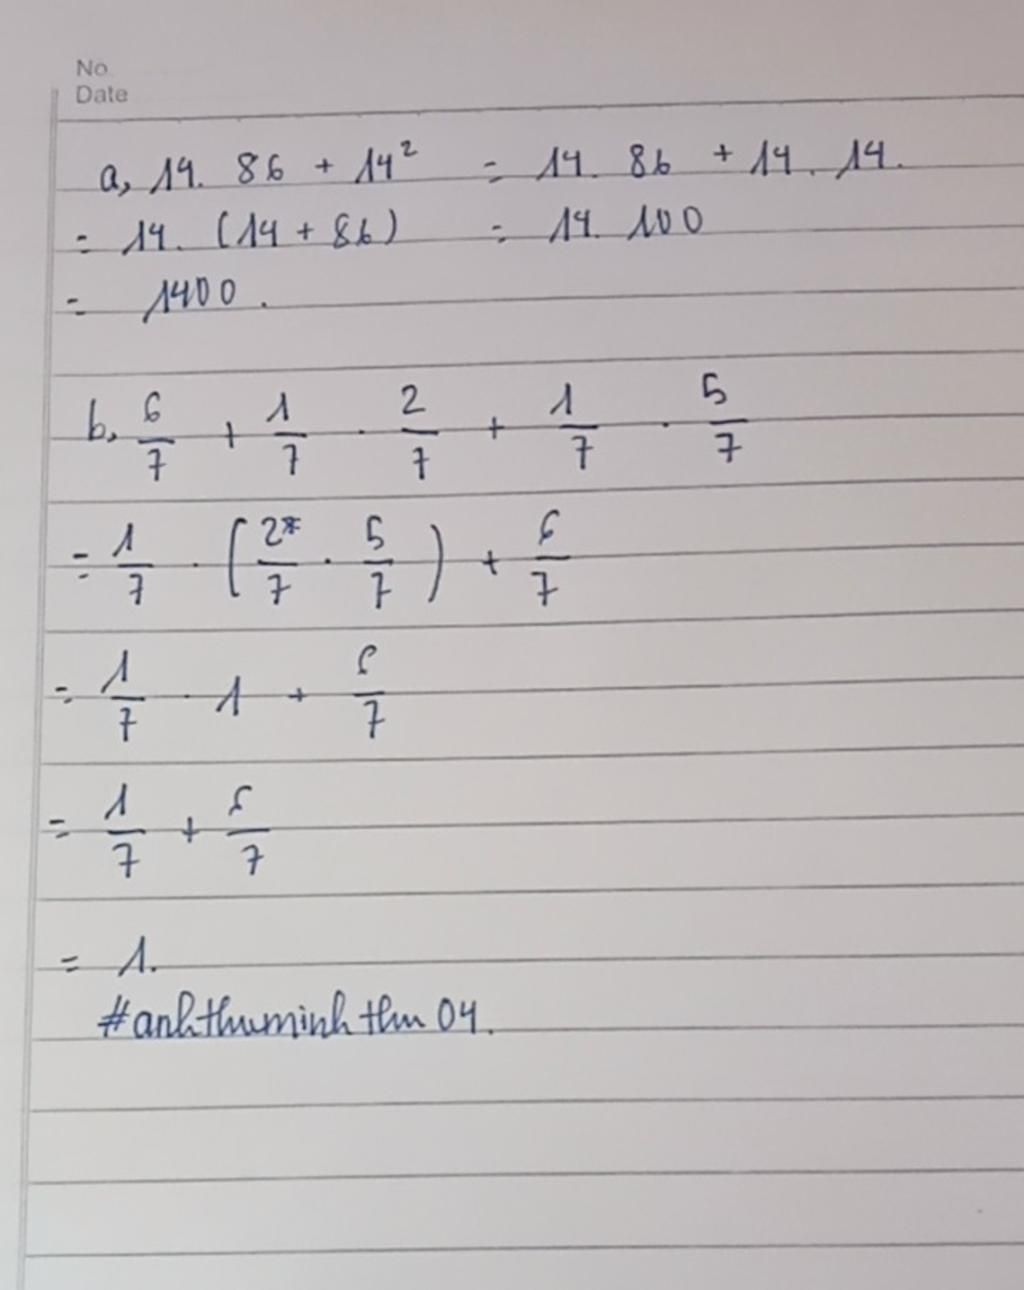 No
Date
a, 14. 86 + 14² = 14. 86 + 14. 14.
= 14. (14 + 86) = 14. 100
= 1400.
b, 6/7 + 1/7 . 2/7 + 1/7 . 5/7
= 1/7 . (2/7 . 5/7) + 6/7
= 1/7 . 1 + 6/7
= 1/7 + 6/7
= 1.
#anhthuminhthu04.